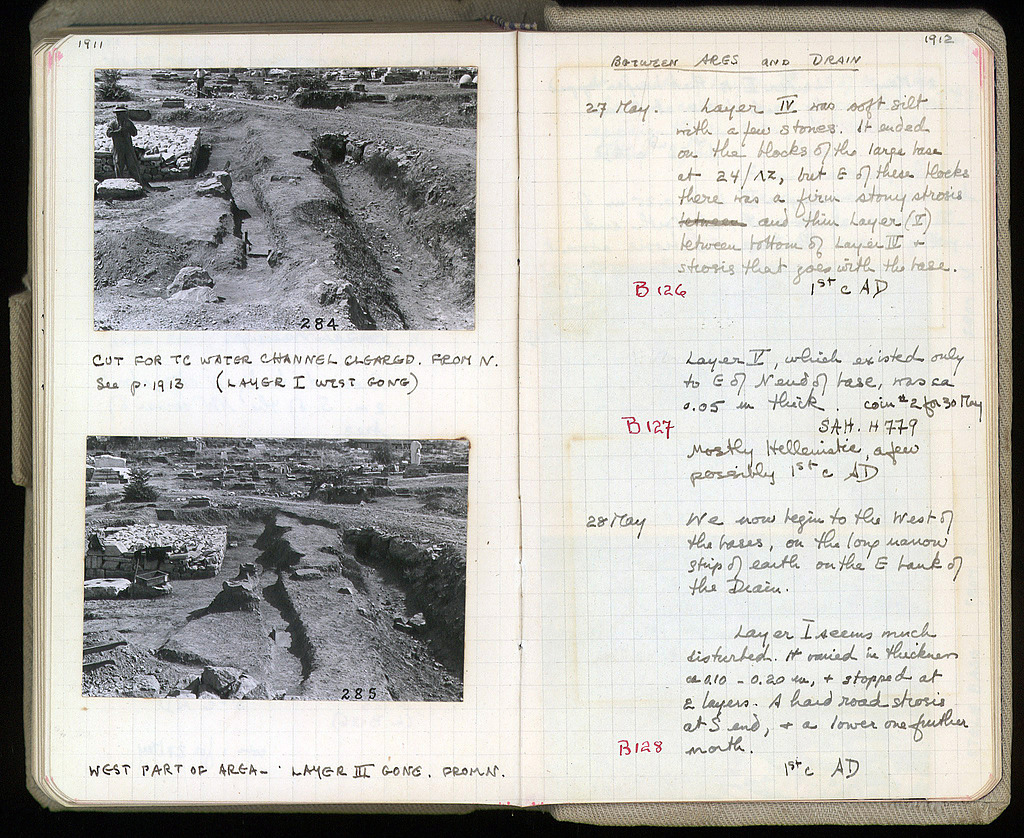 1911
284
CUT FOR TC WATER CHANNEL CLEARED. FROM N.
See p. 1913 (LAYER I WEST GONE)
285
WEST PART OF AREA - LAYER III GONE. FROM N.
1912
BETWEEN ARES AND DRAIN
27 May. Layer IV was soft silt
with a few stones. It ended
on the blocks of the large base
at 24/ΛΖ, but E of these blocks
there was a firm stony strosis
between and thin Layer (V)
between bottom of Layer IV +
strosis that goes with the base.
B 126 1st c AD
Layer V, which existed only
to E of N end of base, was ca
0.05 m thick. coin #2 for 30 May
B 127 SAH. H 779
Mostly Hellenistic, a few
possibly 1st c AD
28 May We now begin to the West of
the bases, on the long narrow
strip of earth on the E bank of
the Drain.
Layer I seems much
disturbed. It varied in thickness
ca 0.10 - 0.20 m, + stopped at
2 layers. A hard road strosis
at S end, + a lower one further
B128 north.
1st c AD